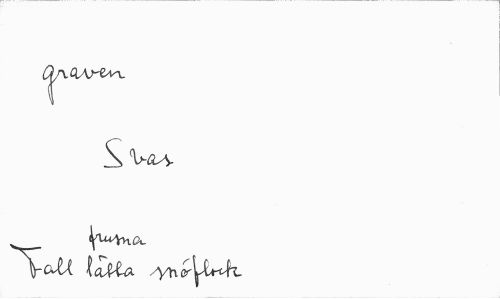 graven
Svas
frusna
Fall lätta snöflock